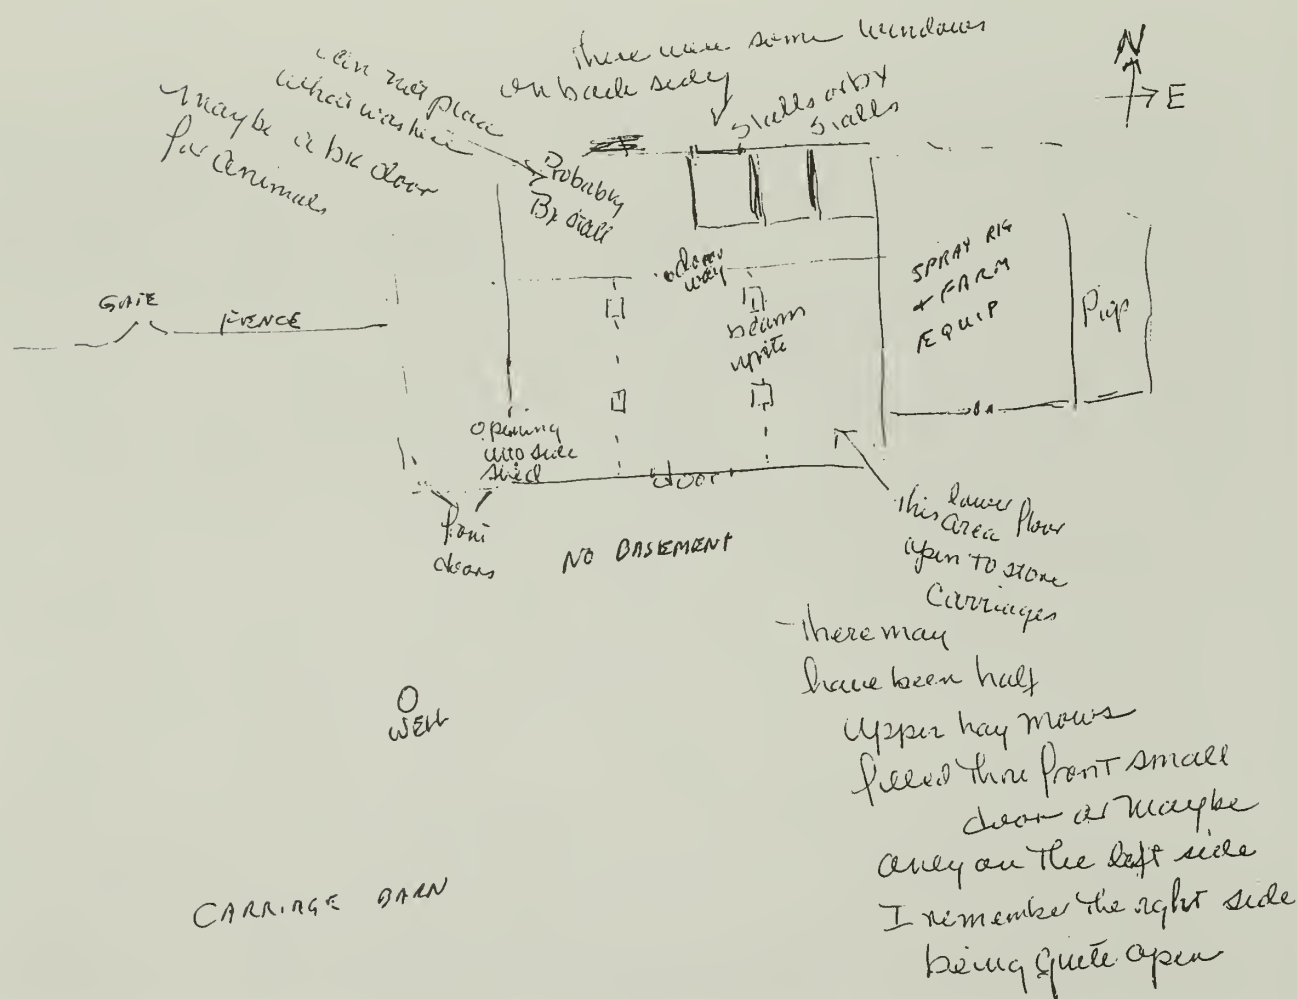 There were some windows
on back side
N
E
Can not place
what was here
Maybe a bk door
for animals
Stalls or bx
Stalls
Probably
Bx stall
door
way
GATE
FENCE
SPRAY RIG
+ FARM
EQUIP
Pigs
beam
uprite
Opening
into side
shed
door
front
doors
NO BASEMENT
This lower floor
area
open to store
Carriages
There may
have been half
upper hay mows
filled thru front small
door or maybe
only on the left side
I remember the right side
being quite open
WELL
CARRIAGE BARN